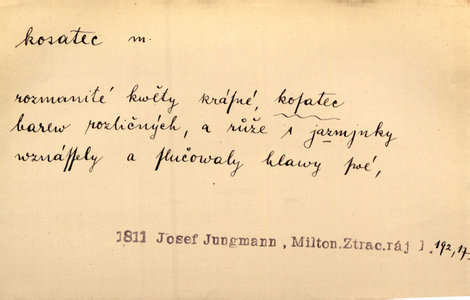 kosatec m.
rozmanité kwěty kráſné, koſatec
barew rozličných, a růže s jazmjnky
wznáſſely a ſlučowaly hlawy své,
1811 Josef Jungmann, Milton.Ztrac.ráj 1.192,17.